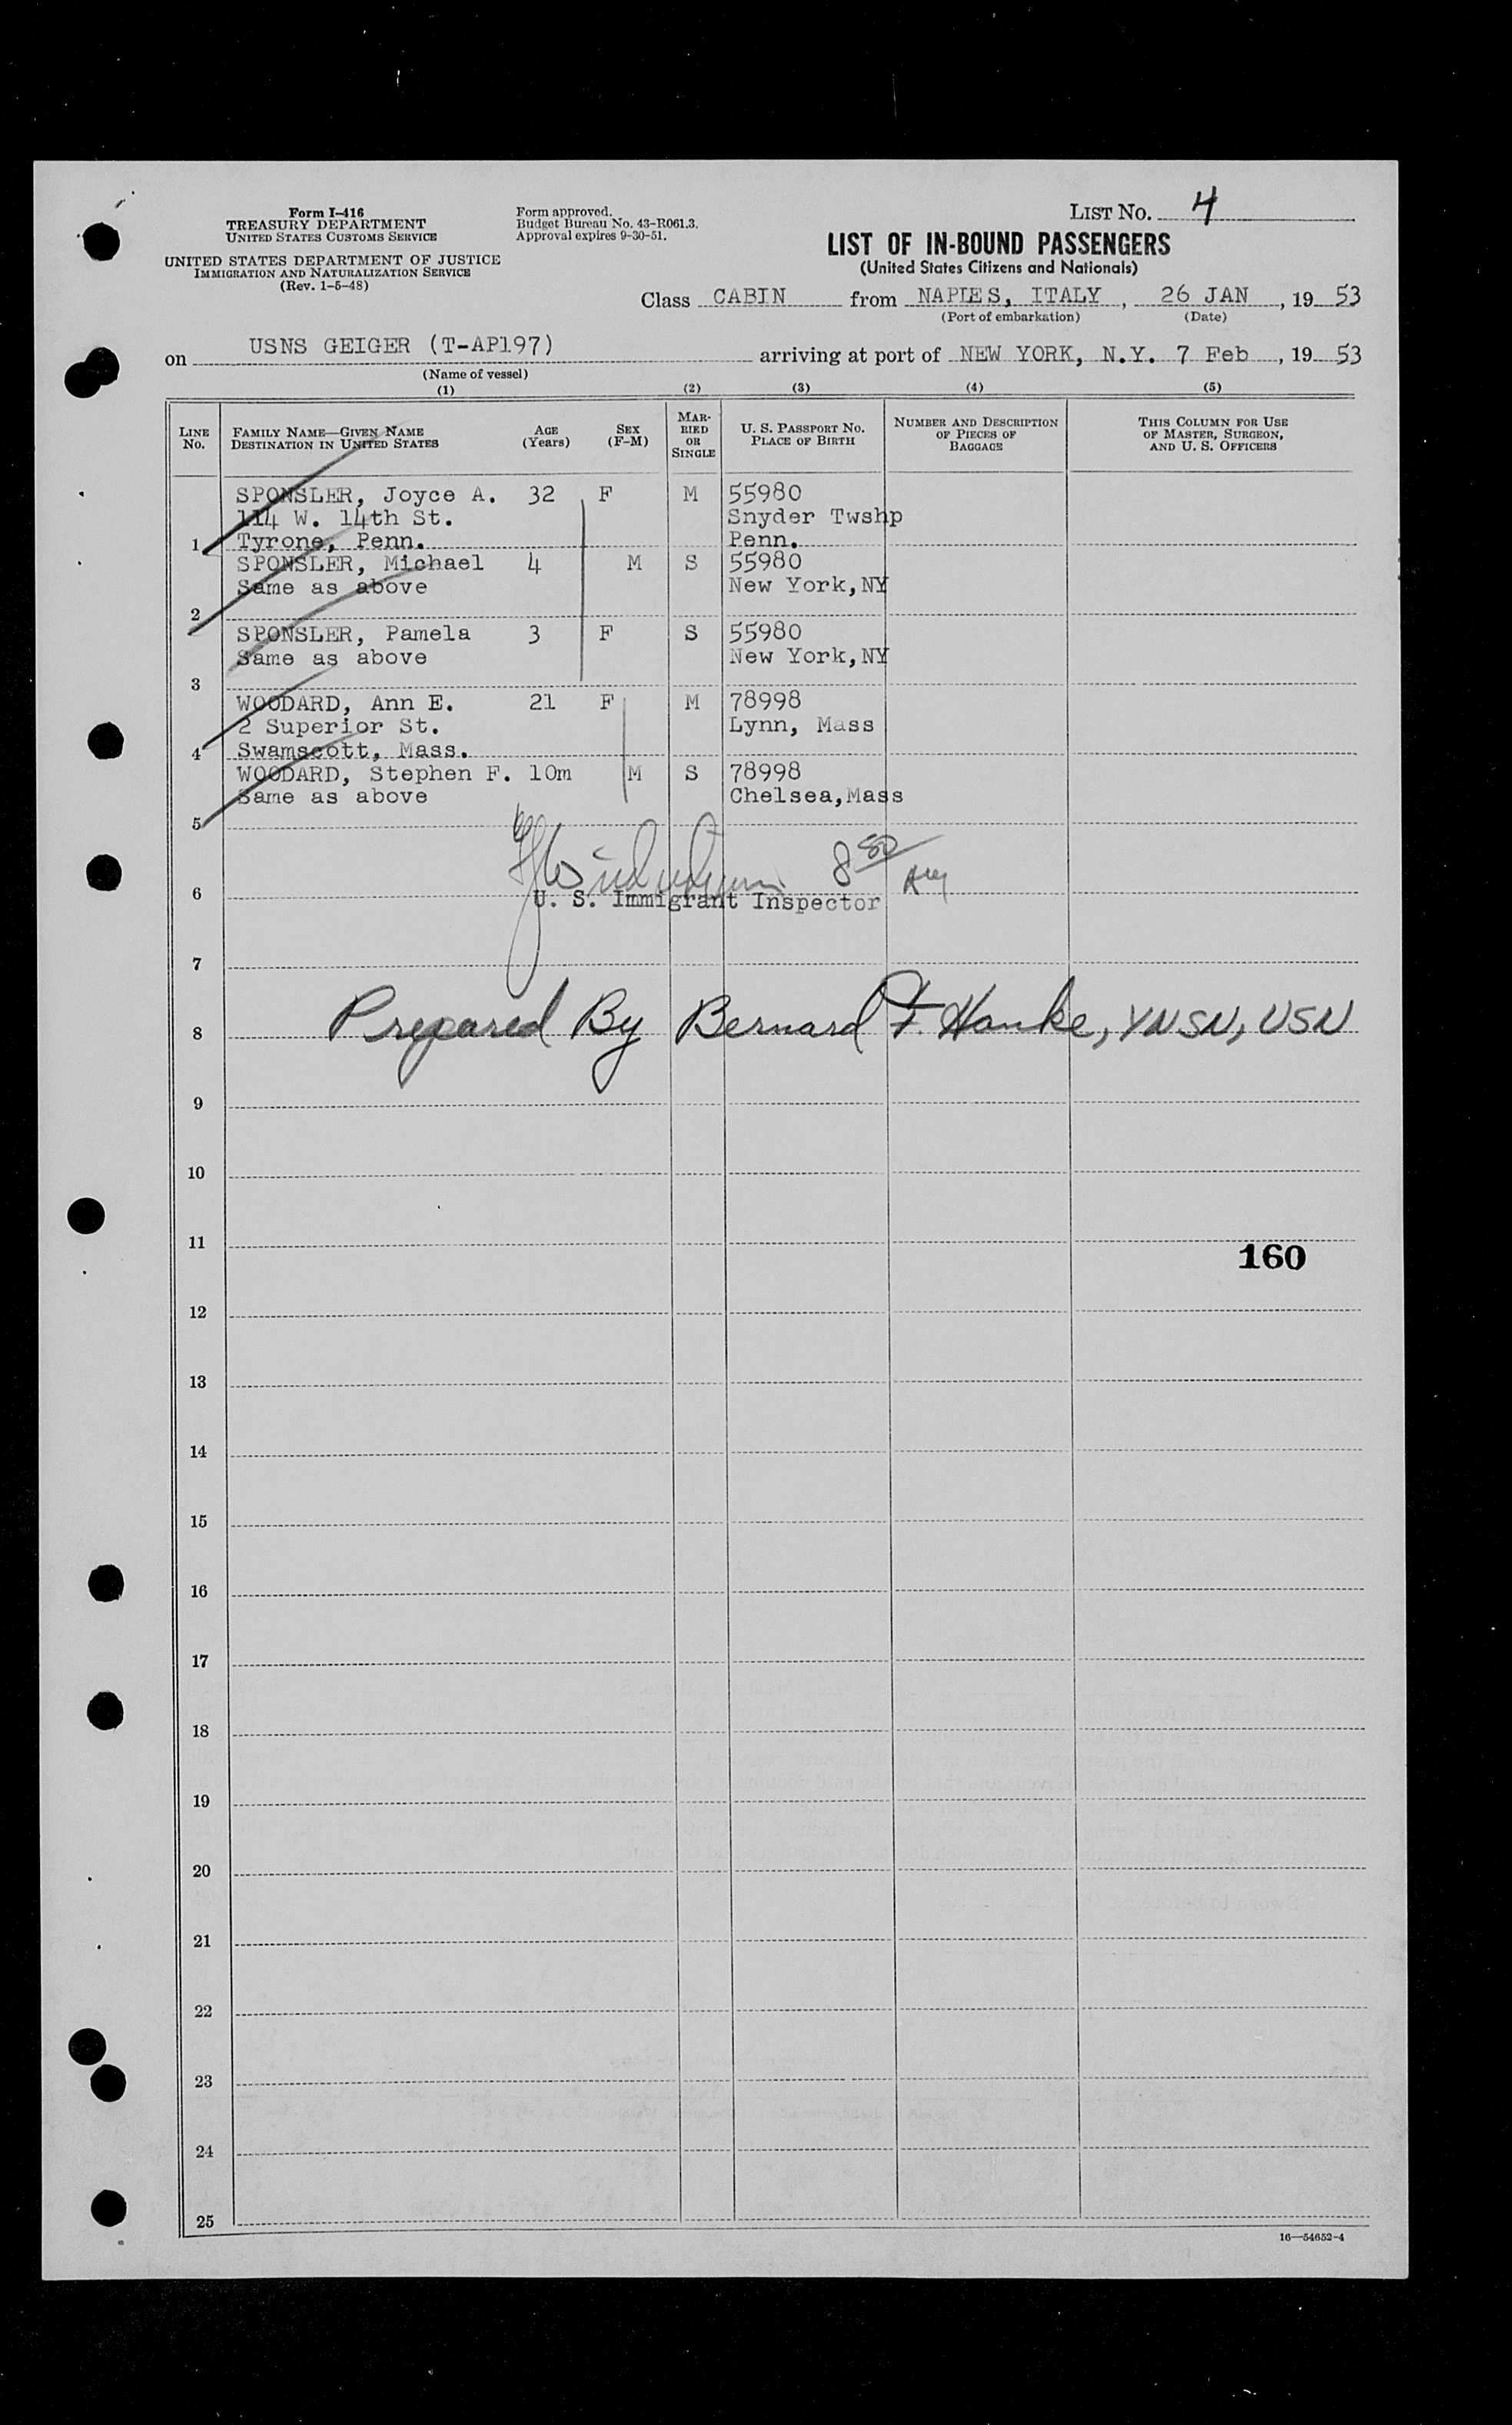 Form I-416
TREASURY DEPARTMENT
UNITED STATES CUSTOMS SERVICE
UNITED STATES DEPARTMENT OF JUSTICE
IMMIGRATION AND NATURALIZATION SERVICE
(Rev. 1-5-48)
Form approved.
Budget Bureau No. 43-R061.3.
Approval expires 9-30-51.
LIST NO. 4
LIST OF IN-BOUND PASSENGERS
(United States Citizens and Nationals)
Class CABIN from NAPLES, ITALY, 26 JAN, 19 53
(Port of embarkation) (Date)
on USNS GEIGER (T-AP197) arriving at port of NEW YORK, N.Y. 7 Feb, 19 53
(Name of vessel)
(1) (2) (3) (4) (5)
LINE No. FAMILY NAME—GIVEN NAME DESTINATION IN UNITED STATES AGE (Years) SEX (F-M) MARRIED OR SINGLE U. S. PASSPORT NO. PLACE OF BIRTH NUMBER AND DESCRIPTION OF PIECES OF BAGGAGE THIS COLUMN FOR USE OF MASTER, SURGEON, AND U. S. OFFICERS
SPONSLER, Joyce A. 32 F M 55980
114 W. 14th St. Snyder Twshp
1 Tyrone, Penn. Penn.
SPONSLER, Michael 4 M S 55980
Same as above New York, NY
2
SPONSLER, Pamela 3 F S 55980
Same as above New York, NY
3
WOODARD, Ann E. 21 F M 78998
2 Superior St. Lynn, Mass
4 Swamscott, Mass.
WOODARD, Stephen F. 10m M S 78998
Same as above Chelsea, Mass
5
8 50
6 U. S. Immigrant Inspector
7
8 Prepared By Bernard F. Hanke, YNSN, USN
9
10
11
160
12
13
14
15
16
17
18
19
20
21
22
23
24
25
16—54652-4